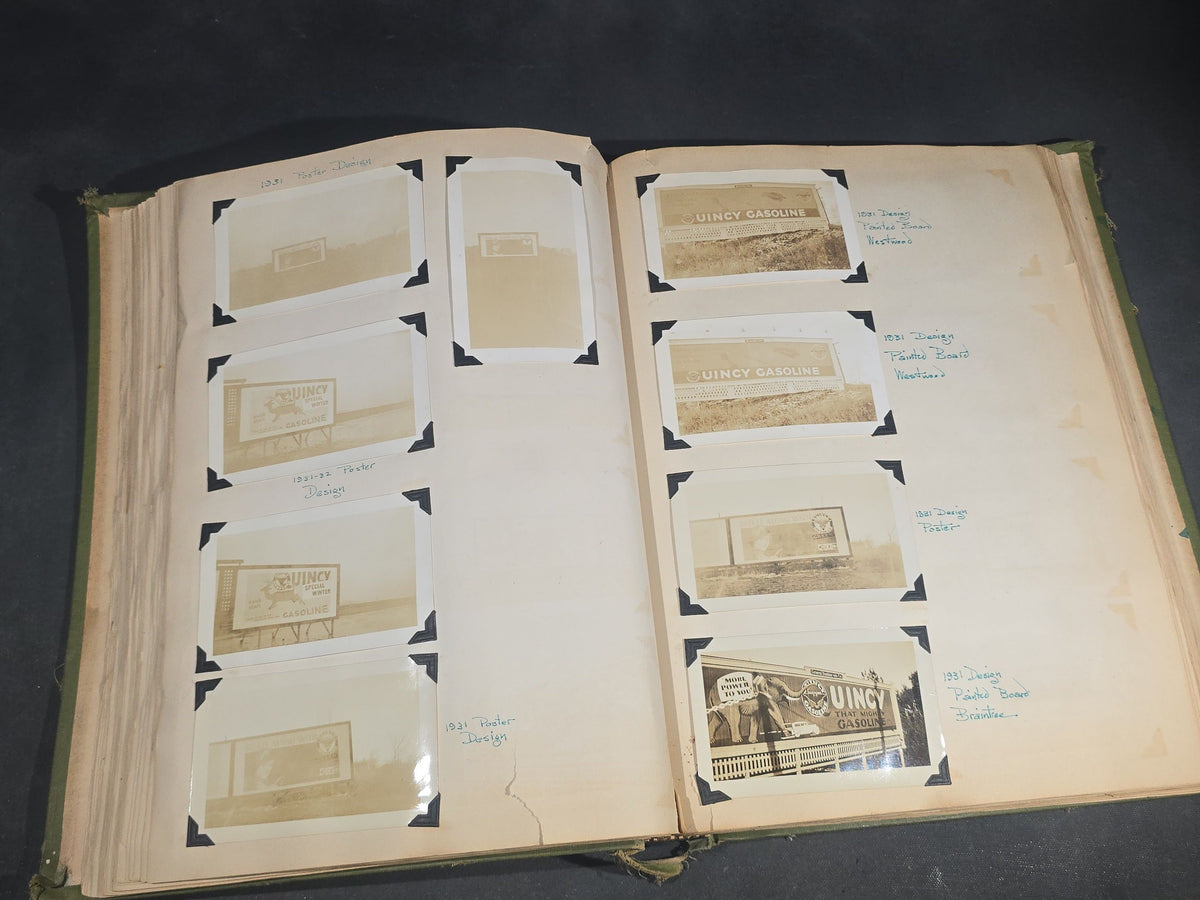 1931 Poster Design
QUINCY
SPECIAL
WINTER
GASOLINE
1931-32 Poster
Design
QUINCY
SPECIAL
WINTER
GASOLINE
1931 Poster
Design
QUINCY GASOLINE
1931 Design
Painted Board
Westwood
QUINCY GASOLINE
1931 Design
Painted Board
Westwood
1931 Design
Poster
MORE
POWER
TO YOU
QUINCY
THAT MIGHTY
GASOLINE
1931 Design
Painted Board
Braintree